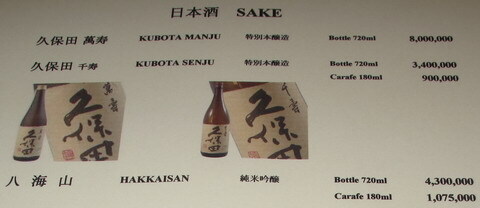 日本酒 SAKE
久保田 萬寿 KUBOTA MANJU 特別本醸造 Bottle 720ml 8,000,000
久保田 千寿 KUBOTA SENJU 特別本醸造 Bottle 720ml 3,400,000
Carafe 180ml 900,000
萬寿
久保田
久保田
千寿
久保田
久保田
八海山 HAKKAISAN 純米吟醸 Bottle 720ml 4,300,000
Carafe 180ml 1,075,000